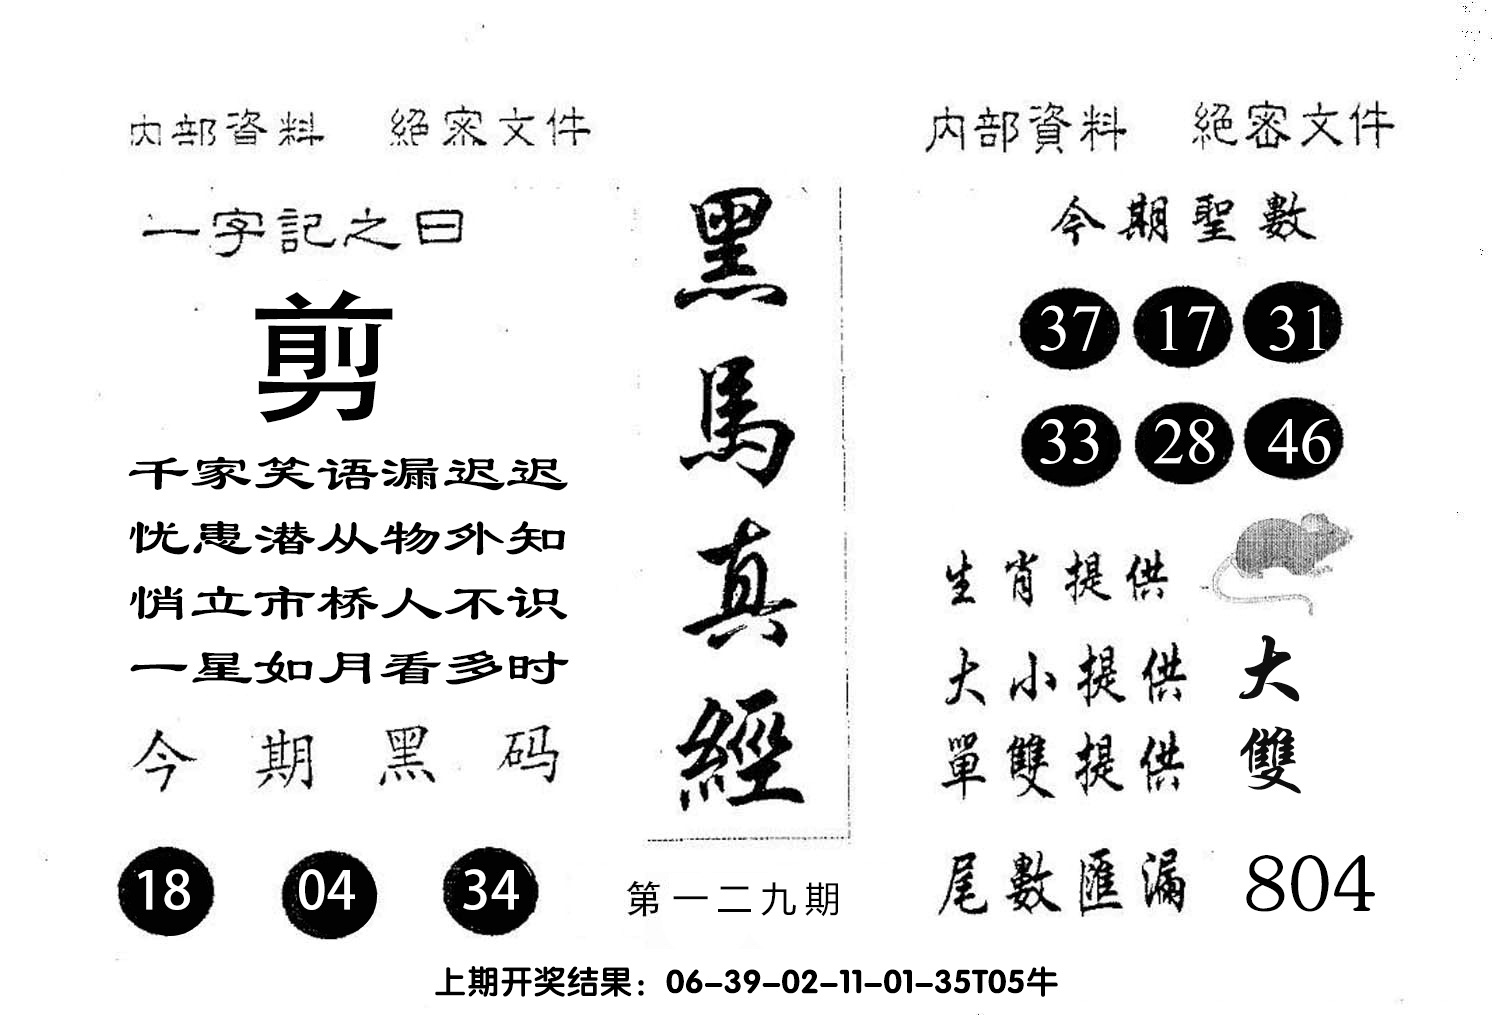 內部資料 絕密文件
一字記之曰
剪
千家笑语漏迟迟
忧患潜从物外知
悄立市桥人不识
一星如月看多时
今期黑码
18 04 34
黑馬真經
第一二九期
內部資料 絕密文件
今期聖數
37 17 31
33 28 46
生肖提供
大小提供 大
單雙提供 雙
尾數匯漏 804
上期开奖结果：06-39-02-11-01-35T05牛